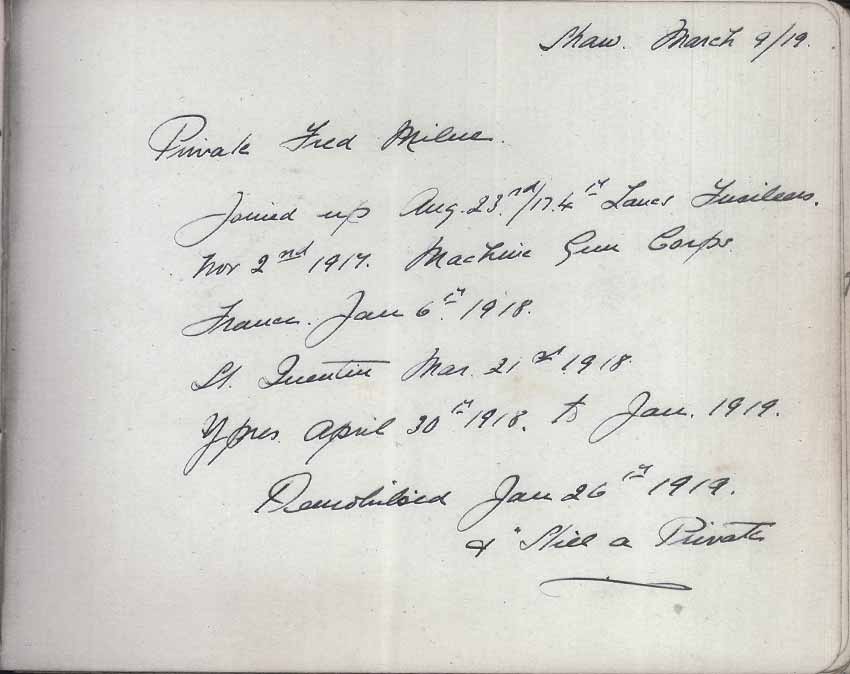 Shaw. March 9/19.
Private Fred Milne.
Joined up Aug. 23rd/17. 4th Lancs Fusiliers.
Nov 2nd 1917. Machine Gun Corps.
France. Jan 6th 1918.
St. Quentin Mar. 21st 1918.
Ypres. April 30th 1918. to Jan. 1919.
Demobilised Jan 26th 1919.
& "Still a Private